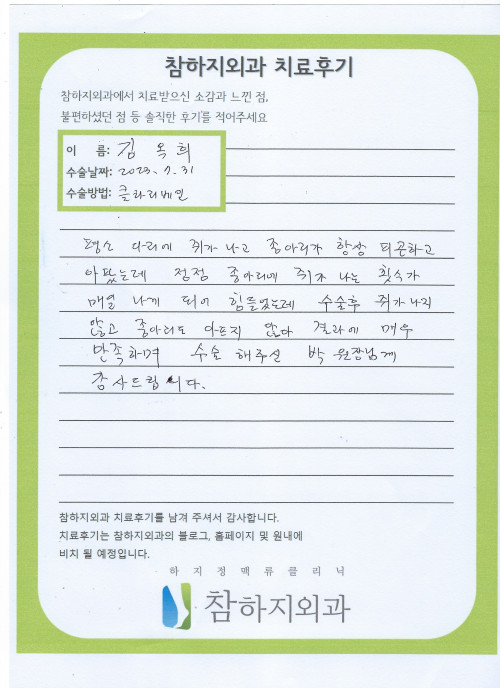 참하지외과 치료후기
참하지외과에서 치료받으신 소감과 느낀 점,
불편하셨던 점 등 솔직한 후기를 적어주세요
이 름: 김 옥 희
수술날짜: 2023. 7. 31
수술방법: 클라리베인
평소 다리에 쥐가 나고 종아리가 항상 피곤하고
아팠는데 점점 종아리에 쥐가 나는 횟수가
매일 나게 되어 힘들었는데 수술후 쥐가 나지
않고 종아리도 아프지 않다 결과에 매우
만족하며 수술 해주신 박 원장님께
감사드립니다.
참하지외과 치료후기를 남겨 주셔서 감사합니다.
치료후기는 참하지외과의 블로그, 홈페이지 및 원내에
비치 될 예정입니다.
하지정맥류클리닉
참하지외과